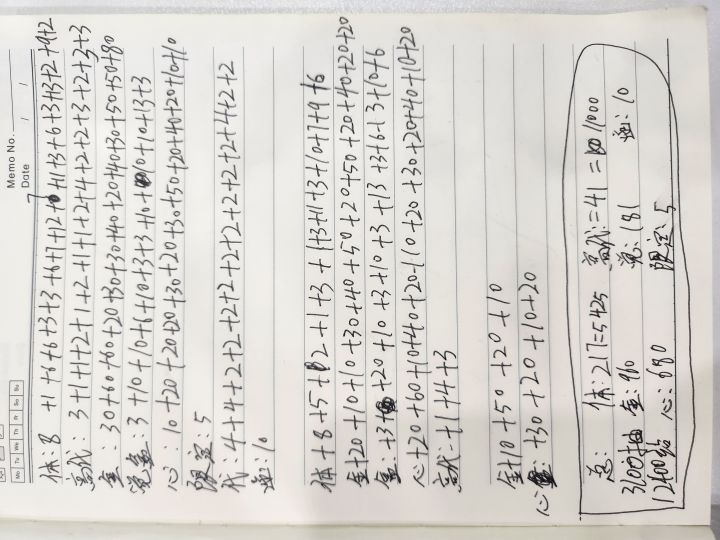 Memo No.
Date / /
Mo Tu We Th Fr Sa Su
体: 8 +1+6+6+3+3+6+7+12+1+3+6+3+13+2+9+2
高代: 3+1+1+2+1+2+1+1+2+4+2+2+3+2+3+3
金: 30+60+60+20+30+30+40+20+40+30+50+50+80
3+10+10+6+10+3+3+10+10+10+13+3
心: 10+20+20+20+30+20+30+50+20+40+20+10+10
限定: 5
代: 4+4+2+2+2+2+2+2+2+2+2+2+4+2+2
10
体+8+5+2+1+3+1+3+1+3+10+7+9+6
金+20+10+10+30+40+50+20+50+20+40+20+20
+3+20+10+3+10+3+13+3+6+3+10+6
心+20+60+10+40+20+10+20+30+20+40+10+20
高代: +1+4+3
金+10+50+20+10
心+30+20+10+20
总: 体: 217=5425 高代: =41=11000
3100抽 金: 960 181 10
12400钻 心: 680 限定: 5